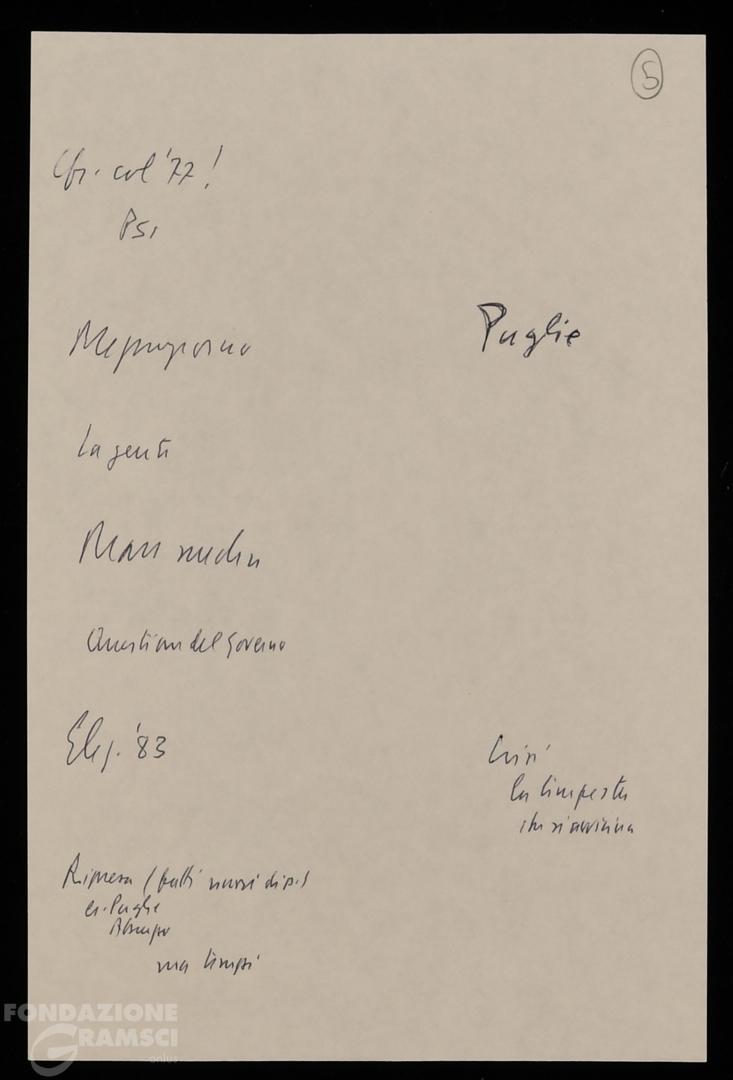 5
Cfr. col '77!
PSI
Puglie
Mezzogiorno
La gente
Mass media
Question del governo
Elez. '83
Crisi
la tempesta
che si avvicina
Ripresa (fatti nuovi di p.)
es. Puglie
Abruzzo
ma tempi
FONDAZIONE
GRAMSCI
onlus